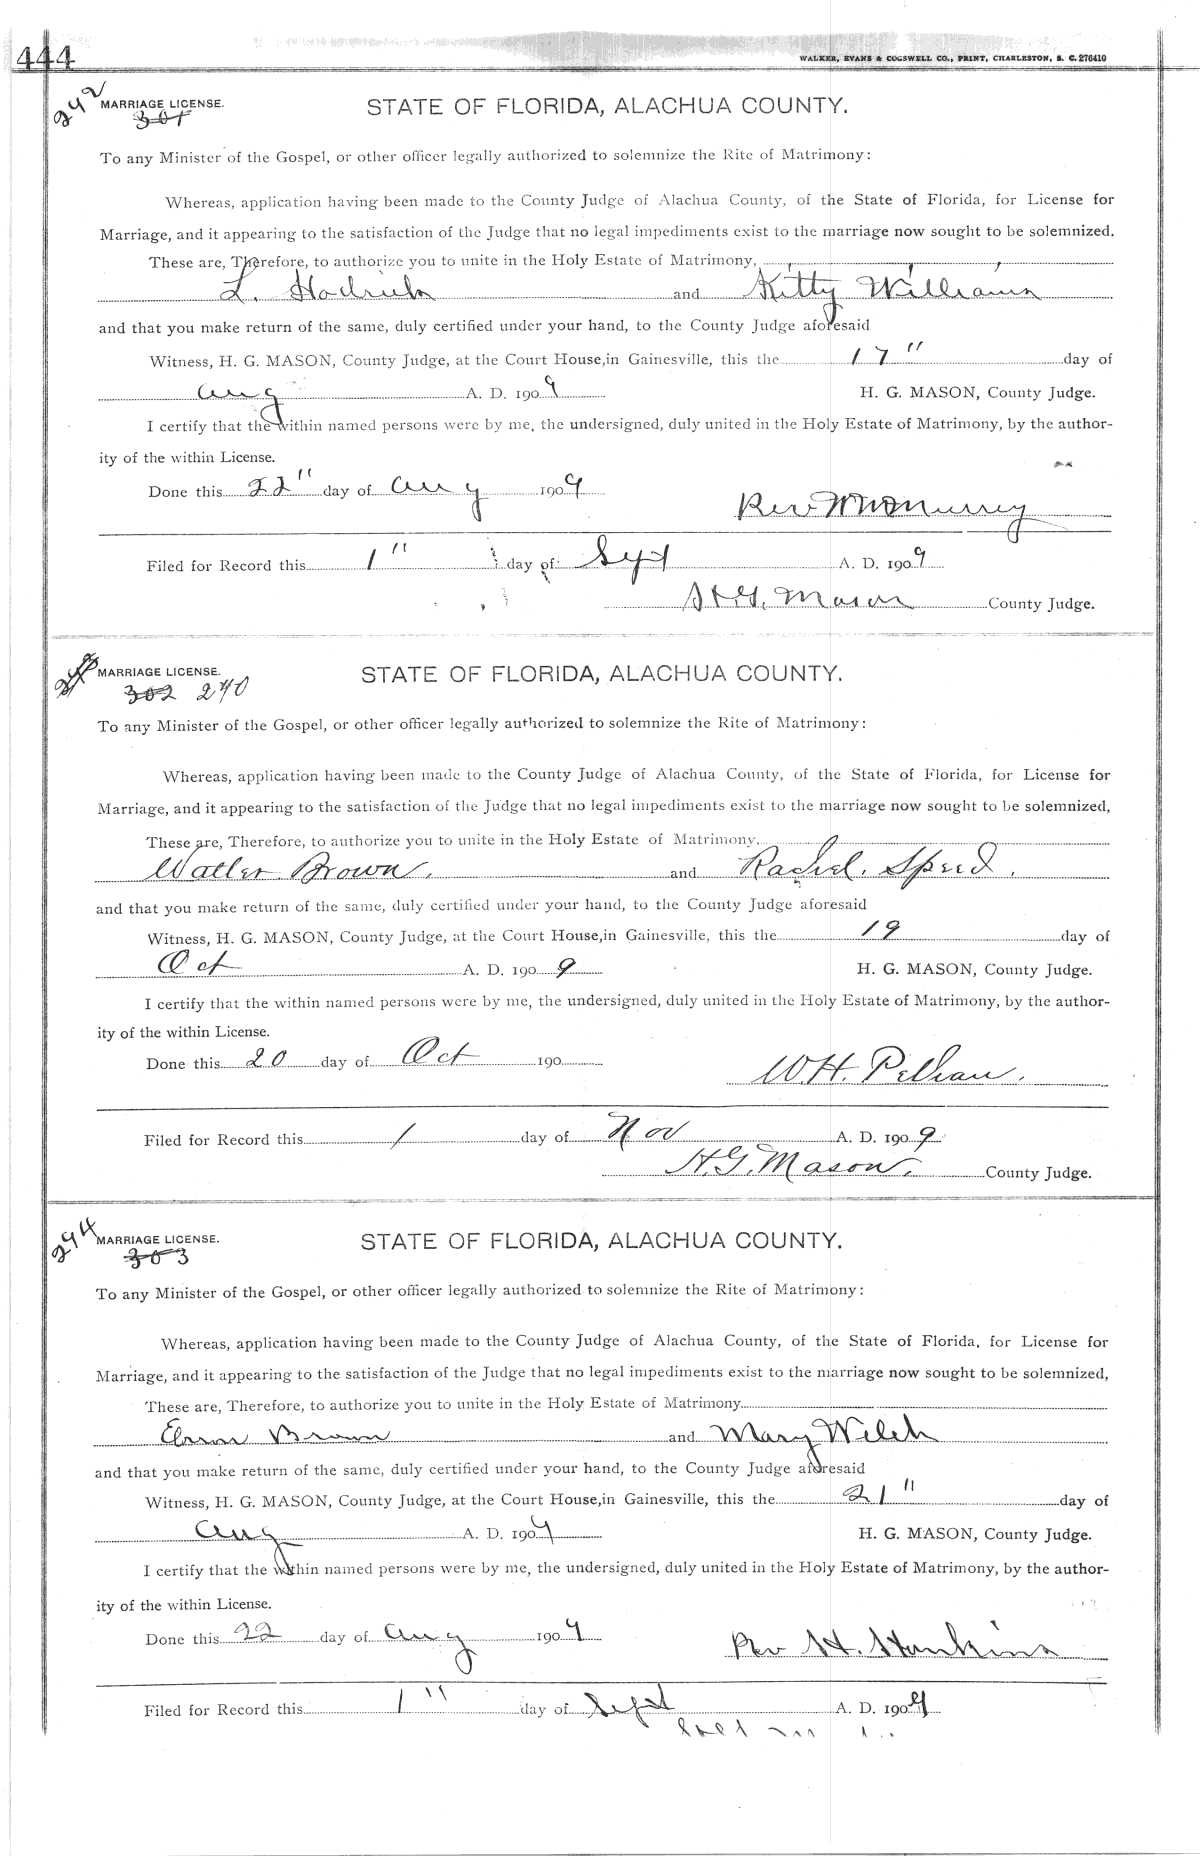 444
WALKER, EVANS & COGSWELL CO., PRINT, CHARLESTON, S. C. 276410
242 MARRIAGE LICENSE. STATE OF FLORIDA, ALACHUA COUNTY.
301
To any Minister of the Gospel, or other officer legally authorized to solemnize the Rite of Matrimony:
Whereas, application having been made to the County Judge of Alachua County, of the State of Florida, for License for
Marriage, and it appearing to the satisfaction of the Judge that no legal impediments exist to the marriage now sought to be solemnized.
These are, Therefore, to authorize you to unite in the Holy Estate of Matrimony,
L. and Kitty Williams
and that you make return of the same, duly certified under your hand, to the County Judge aforesaid
Witness, H. G. MASON, County Judge, at the Court House, in Gainesville, this the 17" day of
Aug A. D. 1909 H. G. MASON, County Judge.
I certify that the within named persons were by me, the undersigned, duly united in the Holy Estate of Matrimony, by the author-
ity of the within License.
Done this 22" day of Aug 1909
Rev
Filed for Record this 1" day of Sept A. D. 1909
H. G. Mason County Judge.
MARRIAGE LICENSE. STATE OF FLORIDA, ALACHUA COUNTY.
302 240
To any Minister of the Gospel, or other officer legally authorized to solemnize the Rite of Matrimony:
Whereas, application having been made to the County Judge of Alachua County, of the State of Florida, for License for
Marriage, and it appearing to the satisfaction of the Judge that no legal impediments exist to the marriage now sought to be solemnized,
These are, Therefore, to authorize you to unite in the Holy Estate of Matrimony,
Walter Brown. and Rachel. Speed.
and that you make return of the same, duly certified under your hand, to the County Judge aforesaid
Witness, H. G. MASON, County Judge, at the Court House, in Gainesville, this the 19 day of
Oct A. D. 1909 H. G. MASON, County Judge.
I certify that the within named persons were by me, the undersigned, duly united in the Holy Estate of Matrimony, by the author-
ity of the within License.
Done this 20 day of Oct 190
W. H.
Filed for Record this 1 day of Nov A. D. 1909
H. G. Mason. County Judge.
244 MARRIAGE LICENSE. STATE OF FLORIDA, ALACHUA COUNTY.
303
To any Minister of the Gospel, or other officer legally authorized to solemnize the Rite of Matrimony:
Whereas, application having been made to the County Judge of Alachua County, of the State of Florida, for License for
Marriage, and it appearing to the satisfaction of the Judge that no legal impediments exist to the marriage now sought to be solemnized,
These are, Therefore, to authorize you to unite in the Holy Estate of Matrimony
Brown and Mary Welch
and that you make return of the same, duly certified under your hand, to the County Judge aforesaid
Witness, H. G. MASON, County Judge, at the Court House, in Gainesville, this the 21" day of
Aug A. D. 1909 H. G. MASON, County Judge.
I certify that the within named persons were by me, the undersigned, duly united in the Holy Estate of Matrimony, by the author-
ity of the within License.
Done this 22 day of Aug 1909
Rev H. Hankins
Filed for Record this 1" day of Sept A. D. 1909